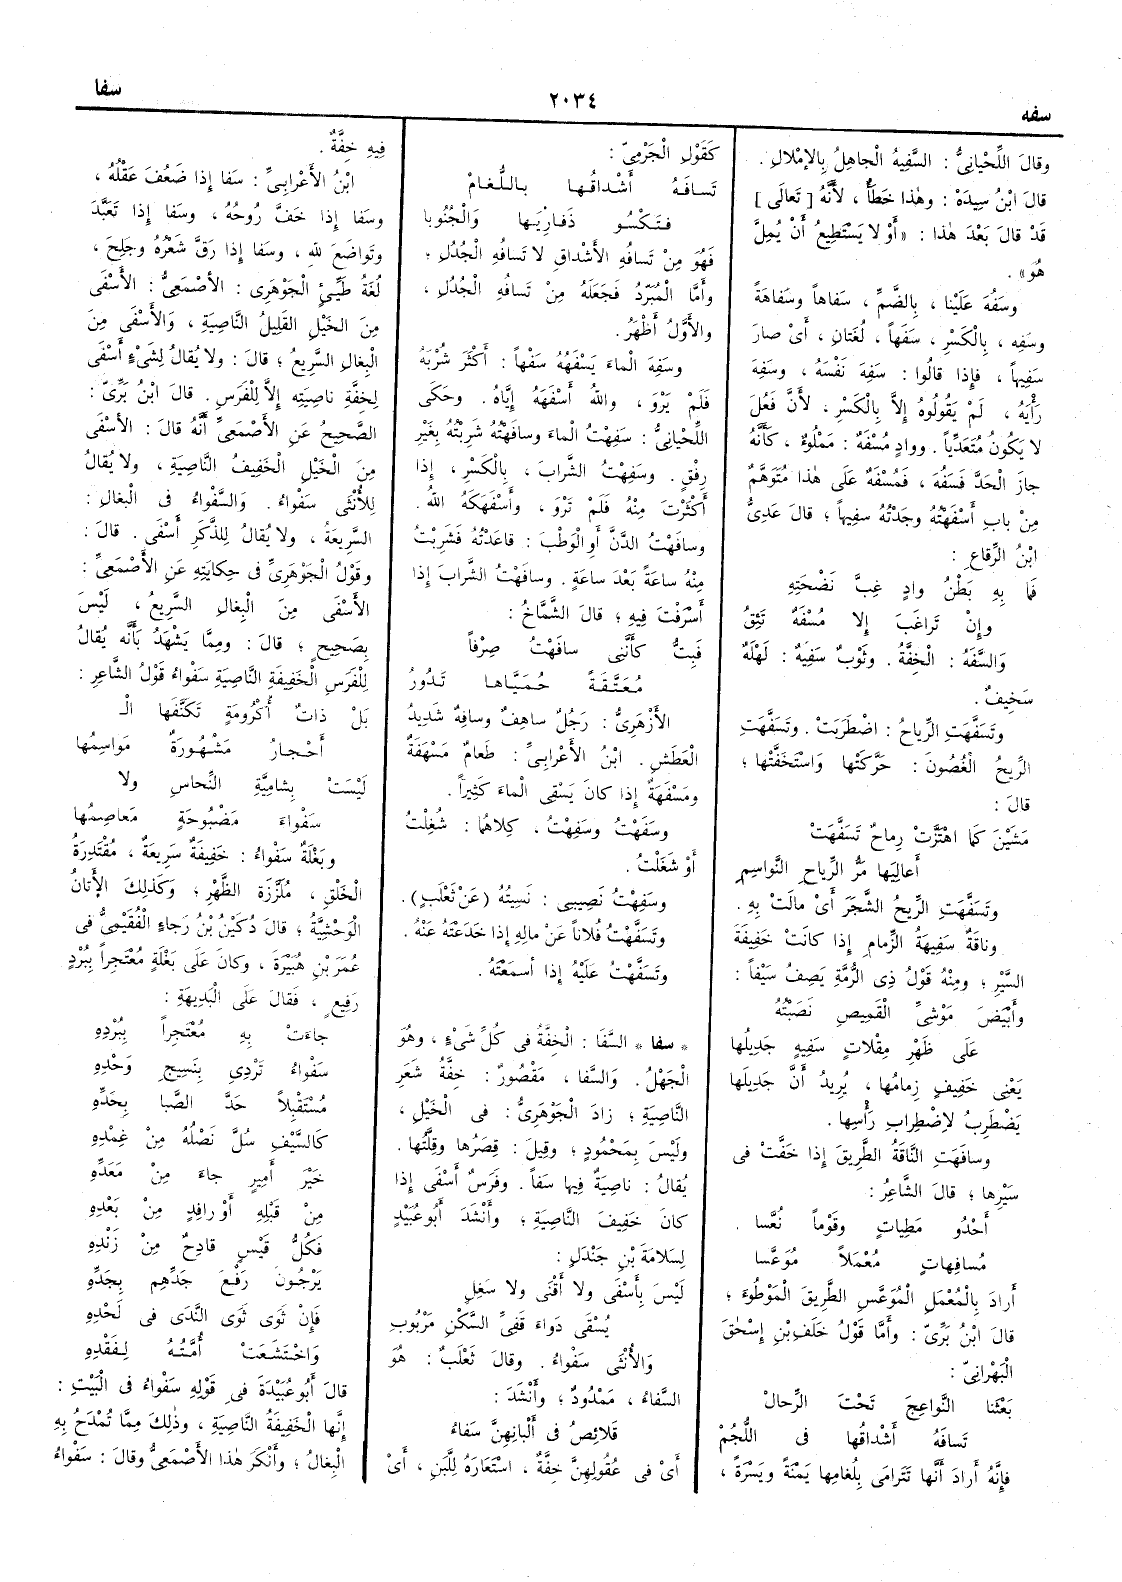 سفه
٢٠٣٤
سفا
وقالَ اللِّحْيانِيُّ : السَّفِيهُ الْجاهِلُ بِالإِمْلالِ .
قالَ ابْنُ سِيدَهْ : وهٰذا خَطَأٌ ، لأَنَّهُ [ تَعالَى ]
قَدْ قالَ بَعْدَ هٰذا : «أَوْ لا يَسْتَطِيعُ أَنْ يُمِلَّ
هُوَ» .
وسَفُهَ عَلَيْنا ، بِالضَّمِّ ، سَفاهاً وسَفاهَةً
وسَفِه ، بِالْكَسْرِ ، سَفَهاً ، لُغَتانِ ، أَىْ صارَ
سَفِيهاً ، فَإِذا قالُوا : سَفِهَ نَفْسَهُ ، وسَفِهَ
رَأْيَهُ ، لَمْ يَقُولُوهُ إِلاَّ بِالْكَسْرِ ، لأَنَّ فَعُلَ
لا يَكُونُ مُتَعَدِّياً . ووادٍ مُسْفَهٌ : مَمْلُوءٌ ، كَأَنَّهُ
جازَ الْحَدَّ فَسَفُهَ ، فَمُسْفَهٌ عَلَى هٰذا مُتَوَهَّمٌ
مِنْ بابِ أَسْفَهْتُهُ وجَدْتُهُ سَفِيهاً ؛ قالَ عَدِىُّ
ابْنُ الرِّقاعِ :
فَما بِهِ بَطْنُ وادٍ غِبَّ نَضْحَتِهِ
وإِنْ تَراغَبَ إِلا مُسْفَهٌ تَئِقُ
وَالسَّفَهُ : الْخِفَّةُ . وثَوْبٌ سَفِيهٌ : لَهْلَهٌ
سَخِيفٌ .
وتَسَفَّهَتِ الرِّياحُ : اضْطَرَبَتْ . وتَسَفَّهَتِ
الرِّيحُ الْغُصُونَ : حَرَّكَتْها وَاسْتَخَفَّتْها ؛
قالَ :
مَشَيْنَ كَما اهْتَزَّتْ رِماحٌ تَسَفَّهَتْ
أَعالِيَها مَرُّ الرِّياحِ النَّواسِمِ
وتَسَفَّهَتِ الرِّيحُ الشَّجَرَ أَىْ مالَتْ بِهِ .
وناقَةٌ سَفِيهَةُ الزِّمامِ إِذا كانَتْ خَفِيفَةَ
السَّيْرِ ؛ ومِنْهُ قَوْلُ ذِى الرُّمَّةِ يَصِفُ سَيْفاً :
وأَبْيَضَ مَوْشِىِّ الْقَمِيصِ نَصَبْتُهُ
عَلَى ظَهْرِ مِقْلاتٍ سَفِيهٍ جَدِيلُها
يَعْنِى خَفِيفٍ زِمامُها ، يُرِيدُ أَنَّ جَدِيلَها
يَضْطَرِبُ لاِضْطِرابِ رَأْسِها .
وسافَهَتِ النَّاقَةُ الطَّرِيقَ إِذا خَفَّتْ فى
سَيْرِها ؛ قالَ الشَّاعِرُ :
أَحْدُو مَطِيَّاتٍ وقَوْماً نُعَّسا
مُسافِهاتٍ مُعْمَلاً مُوَعَّسا
أَرادَ بِالْمُعْمَلِ الْمُوَعَّسِ الطَّرِيقَ الْمَوْطُوءَ ؛
قالَ ابْنُ بَرِّىّ : وأَمَّا قَوْلُ خَلَفِ بْنِ إِسْحٰقَ
الْبَهْرانِىّ :
بَعَثْنا النَّواعِجَ تَحْتَ الرِّحالْ
تَسافَهُ أَشْداقُها فى اللُّجُمْ
فَإِنَّهُ أَرادَ أَنَّها تَتَرامَى بِلُغامِها يَمْنَةً ويَسْرَةً ،
كَقَوْلِ الْجَرْمِىّ :
تَسافَهُ أَشْداقُها باللُّغامْ
فَتَكْسُو ذَفارِيَها وَالْجُنُوبا
فَهُوَ مِنْ تَسافُهِ الأَشْداقِ لا تَسافُهِ الْجُدُلِ ؛
وأَمَّا الْمُبَرِّدُ فَجَعَلَهُ مِنْ تَسافُهِ الْجُدُلِ ،
والأَوَّلُ أَظْهَرُ .
وسَفِهَ الْماءَ يَسْفَهُهُ سَفْهاً : أَكْثَرَ شُرْبَهُ
فَلَمْ يَرْوَ ، واللهُ أَسْفَهَهُ إِيَّاهُ . وحَكَى
اللِّحْيانِىُّ : سَفِهْتُ الْماءَ وسافَهْتُهُ شَرِبْتُهُ بِغَيْرِ
رِفْقٍ . وسَفِهْتُ الشَّرابَ ، بِالْكَسْرِ ، إِذا
أَكْثَرْتَ مِنْهُ فَلَمْ تَرْوَ ، وأَسْفَهَكَهُ اللهُ .
وسافَهْتُ الدَّنَّ أَوِ الْوَطْبَ : قاعَدْتُهُ فَشَرِبْتُ
مِنْهُ ساعَةً بَعْدَ ساعَةٍ . وسافَهْتُ الشَّرابَ إِذا
أَسْرَفْتَ فِيهِ ؛ قالَ الشَّمَّاخُ :
فَبِتُّ كَأَنَّنِى سافَهْتُ صِرْفاً
مُعَتَّقَةً حُمَيَّاها تَدُورُ
الأَزْهَرِىُّ : رَجُلٌ ساهِفٌ وسافِهٌ شَدِيدُ
الْعَطَشِ . ابْنُ الأَعْرابِىّ : طَعامٌ مَسْهَفَةٌ
ومَسْفَهَةٌ إِذا كانَ يَسْقِى الْماءَ كَثِيراً .
وسَفَهْتُ وسَفِهْتُ ، كِلاهُما : شُغِلْتُ
أَوْ شَغَلْتُ .
وسَفِهْتُ نَصِيبِى : نَسِيتُهُ (عَنْ ثَعْلَبٍ) .
وتَسَفَّهْتُ فُلاناً عَنْ مالِهِ إِذا خَدَعْتَهُ عَنْهُ .
وتَسَفَّهْتُ عَلَيْهِ إِذا أَسْمَعْتَهُ .
* سفا * السَّفَا : الْخِفَّةُ فى كُلِّ شَىْءٍ ، وهُوَ
الْجَهْلُ . وَالسَّفا ، مَقْصُورٌ : خِفَّةُ شَعَرِ
النَّاصِيَةِ ؛ زادَ الْجَوْهَرِىُّ : فى الْخَيْلِ ،
ولَيْسَ بِمَحْمُودٍ ؛ وقِيلَ : قِصَرُها وقِلَّتُها .
يُقالُ : ناصِيَةٌ فِيها سَفاً . وفَرَسٌ أَسْفَى إِذا
كانَ خَفِيفَ النَّاصِيَةِ ؛ وأَنْشَدَ أَبُو عُبَيْدٍ
لِسَلامَةَ بْنِ جَنْدَلٍ :
لَيْسَ بِأَسْفَى ولا أَقْنَى ولا سَغِلٍ
يُسْقَى دَواءَ قَفِىِّ السَّكْنِ مَرْبُوبِ
وَالأُنْثَى سَفْواءُ . وقالَ ثَعْلَبٌ : هُوَ
السَّفاءُ ، مَمْدُودٌ ؛ وأَنْشَدَ :
قَلائِصُ فى أَلْبانِهِنَّ سَفاءُ
أَىْ فى عُقُولِهِنَّ خِفَّةٌ ، اسْتَعارَهُ لِلَّبَنِ ، أَىْ
فِيهِ خِفَّةٌ .
ابْنُ الأَعْرابِىِّ : سَفا إِذا ضَعُفَ عَقْلُهُ ،
وسَفا إِذا خَفَّ رُوحُهُ ، وسَفا إِذا تَعَبَّدَ
وتَواضَعَ للهِ ، وسَفا إِذا رَقَّ شَعْرُهُ وجَلِحَ ،
لُغَةُ طَيِّئٍ الْجَوْهَرِى : الأَصْمَعِىُّ : الأَسْفَى
مِنَ الْخَيْلِ الْقَلِيلُ النَّاصِيَةِ ، وَالأَسْفَى مِنَ
الْبِغالِ السَّرِيعُ ؛ قالَ : ولا يُقالُ لِشَىْءٍ أَسْفَى
لِخِفَّةِ ناصِيَتِهِ إِلاَّ لِلْفَرَسِ . قالَ ابْنُ بَرِّىّ :
الصَّحِيحُ عَنِ الأَصْمَعِىِّ أَنَّهُ قالَ : الأَسْفَى
مِنَ الْخَيْلِ الْخَفِيفُ النَّاصِيَةِ ، ولا يُقالُ
لِلأُنْثَى سَفْواءُ . وَالسَّفْواءُ فى الْبِغالِ :
السَّرِيعَةُ ، ولا يُقالُ لِلذَّكَرِ أَسْفَى . قالَ :
وقَوْلُ الْجَوْهَرِىِّ فى حِكايَتِهِ عَنِ الأَصْمَعِىِّ :
الأَسْفَى مِنَ الْبِغالِ السَّرِيعُ ، لَيْسَ
بِصَحِيحٍ ؛ قالَ : ومِمَّا يَشْهَدُ بِأَنَّه يُقالُ
لِلْفَرَسِ الْخَفِيفَةِ النَّاصِيَةِ سَفْواءُ قَوْلُ الشَّاعِرِ :
بَلْ ذاتُ أُكْرُومَةٍ تَكَنَّفَها الْـ
أَحْجارُ مَشْهُورَةٌ مَواسِمُها
لَيْسَتْ بِشامِيَّةِ النُّحاسِ ولا
سَفْواءَ مَضْبُوحَةٍ مَعاصِمُها
وبَغْلَةٌ سَفْواءُ : خَفِيفَةٌ سَرِيعَةٌ ، مُقْتَدِرَةُ
الْخَلْقِ ، مُلَزَّزَةُ الظَّهْرِ ؛ وكَذٰلِكَ الأَتانُ
الْوَحْشِيَّةُ ؛ قالَ دُكَيْنُ بْنُ رَجاءٍ الْفُقَيْمِىُّ فى
عُمَرَ بْنِ هُبَيْرَةَ ، وكانَ عَلَى بَغْلَةٍ مُعْتَجِراً بِبُرْدٍ
رَفِيعٍ ، فَقالَ عَلَى الْبَدِيهَةِ :
جاءَتْ بِهِ مُعْتَجِراً بِبُرْدِهِ
سَفْواءُ تَرْدِى بِنَسِيجِ وَحْدِهِ
مُسْتَقْبِلاً حَدَّ الصَّبا بِحَدِّهِ
كَالسَّيْفِ سُلَّ نَصْلُهُ مِنْ غِمْدِهِ
خَيْرَ أَمِيرٍ جاءَ مِنْ مَعَدِّهِ
مِنْ قَبْلِهِ أَوْ رافِدٍ مِنْ بَعْدِهِ
فَكُلُّ قَيْسٍ قادِحٌ مِنْ زَنْدِهِ
يَرْجُونَ رَفْعَ جَدِّهِم بِجَدِّهِ
فَإِنْ ثَوَى ثَوَى النَّدَى فى لَحْدِهِ
وَاخْتَشَعَتْ أُمَّتُهُ لِفَقْدِهِ
قالَ أَبُو عُبَيْدَةَ فى قَوْلِهِ سَفْواءُ فى الْبَيْتِ :
إِنَّها الْخَفِيفَةُ النَّاصِيَةِ ، وذٰلِكَ مِمَّا تُمْدَحُ بِهِ
الْبِغالُ ؛ وأَنْكَرَ هٰذا الأَصْمَعِىُّ وقالَ : سَفْواءُ